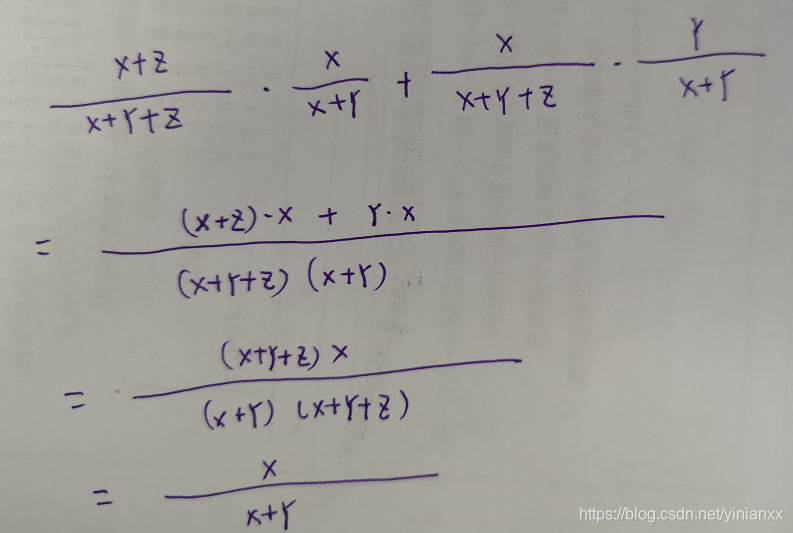 x+z/x+y+z · x/x+y + x/x+y+z · y/x+y
= (x+z)·x + y·x/(x+y+z) (x+y)
= (x+y+z) x/(x+y) (x+y+z)
= x/x+y
https://blog.csdn.net/yinianxx